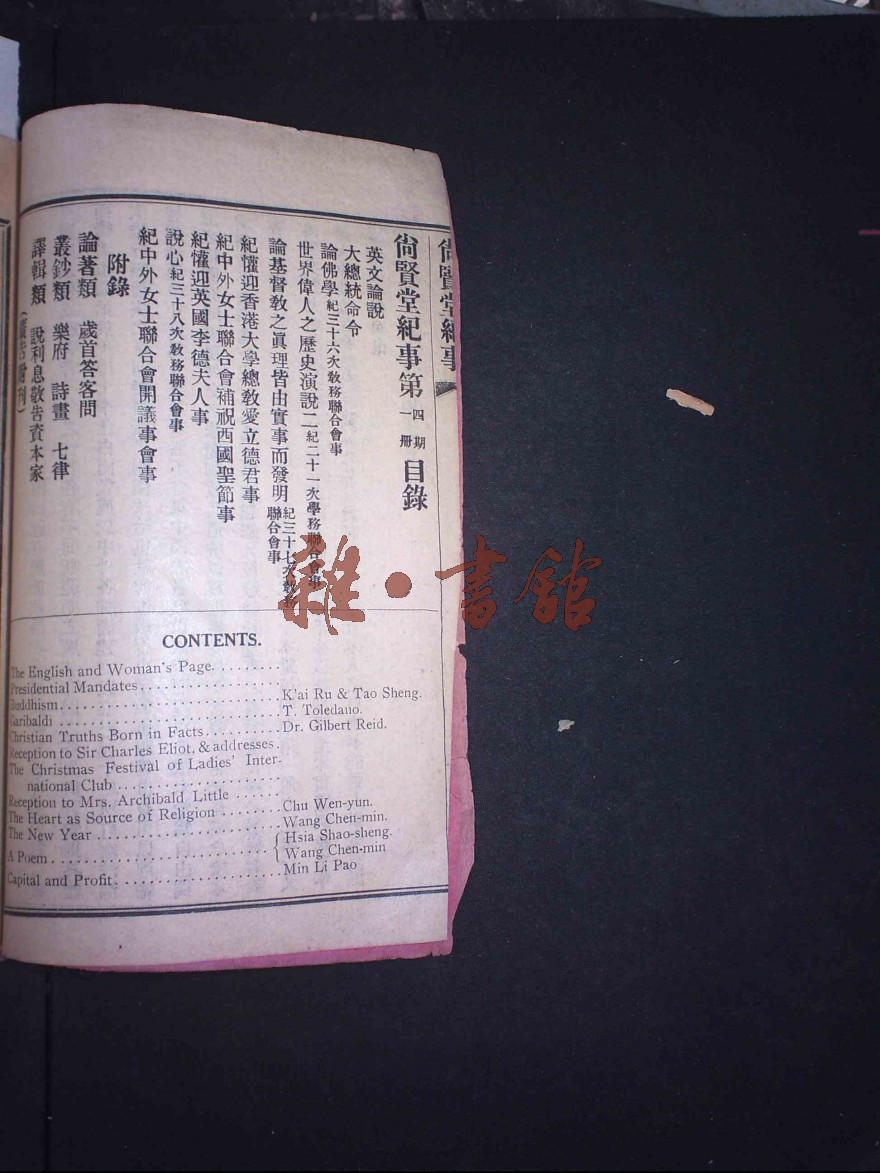 尙賢堂紀事
尙賢堂紀事第四期一册目錄
英文論說
大總統命令
論佛學紀三十六次敎務聯合會事
世界偉人之歷史演說二紀二十一次學務聯合會事
論基督敎之眞理皆由實事而發明紀三十七次敎務聯合會事
紀懽迎香港大學總敎愛立德君事
紀中外女士聯合會補祝西國聖節事
紀懽迎英國李德夫人事
說心紀三十八次敎務聯合會事
紀中外女士聯合會開議事會事
附錄
論著類 歲首答客問
叢鈔類 樂府 詩畫 七律
譯輯類 說利息敬告資本家
CONTENTS.
The English and Woman's Page.........
Presidential Mandates..................
Buddhism..............................K'ai Ru & Tao Sheng.
Garibaldi..............................T. Toledano.
Christian Truths Born in Facts..........Dr. Gilbert Reid.
Reception to Sir Charles Eliot, & addresses.
The Christmas Festival of Ladies' Inter-
national Club......................
Reception to Mrs. Archibald Little......
The Heart as Source of Religion........Chu Wen-yun.
The New Year........................Wang Chen-min.
A Poem............................{Hsia Shao-sheng.
Wang Chen-min
Capital and Profit.....................Min Li Pao
雜·書館